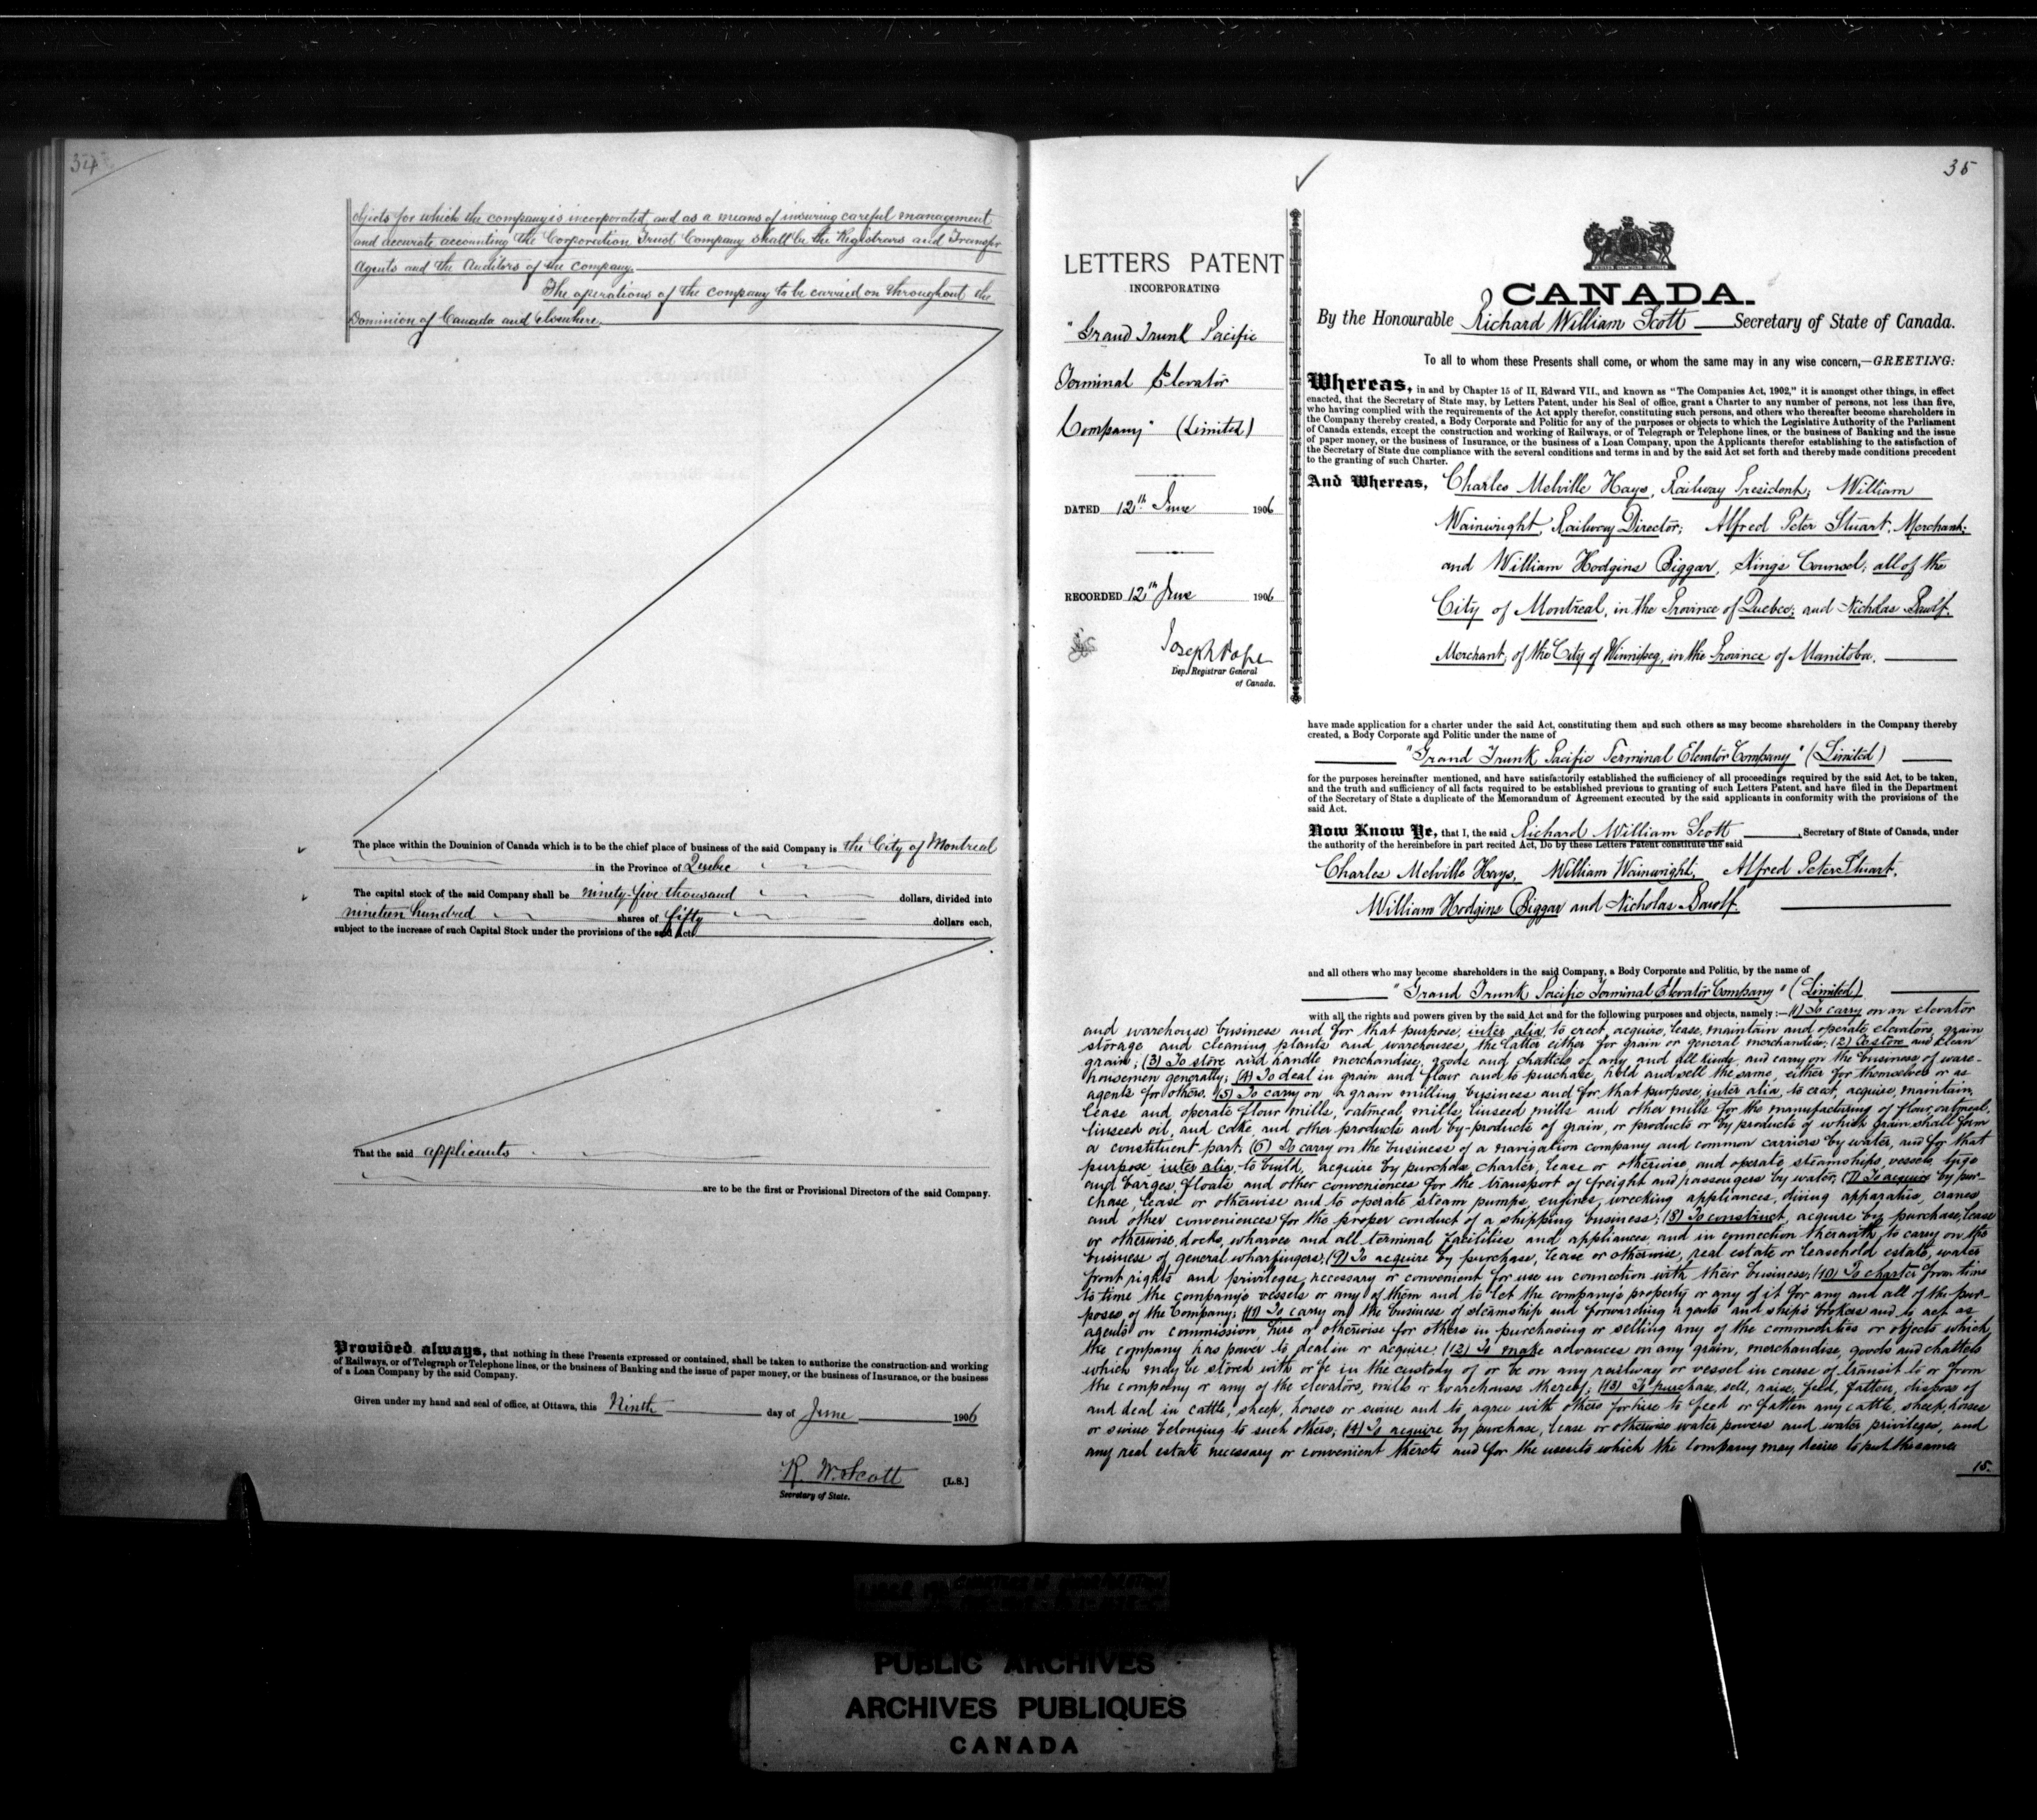 34
objects for which the company is incorporated, and as a means of insuring careful management
and accurate accounting the Corporation Trust Company shall be the Registrars and Transfer
Agents and the Auditors of the company.
The operations of the company to be carried on throughout the
Dominion of Canada and elsewhere.
The place within the Dominion of Canada which is to be the chief place of business of the said Company is the City of Montreal
in the Province of Quebec
The capital stock of the said Company shall be ninety-five thousand dollars, divided into
nineteen hundred shares of fifty dollars each,
subject to the increase of such Capital Stock under the provisions of the said Act.
That the said applicants
are to be the first or Provisional Directors of the said Company.
Provided always, that nothing in these Presents expressed or contained, shall be taken to authorize the construction and working
of Railways, or of Telegraph or Telephone lines, or the business of Banking and the issue of paper money, or the business of Insurance, or the business
of a Loan Company by the said Company.
Given under my hand and seal of office, at Ottawa, this Ninth day of June 1906
R. W. Scott [L.S.]
Secretary of State.
35
LETTERS PATENT
INCORPORATING
"Grand Trunk Pacific
Terminal Elevator
Company" (Limited)
DATED 12th June 1906
RECORDED 12th June 1906
Joseph Pope
Dep. Registrar General
of Canada.
CANADA.
By the Honourable Richard William Scott Secretary of State of Canada.
To all to whom these Presents shall come, or whom the same may in any wise concern,—GREETING:
Whereas, in and by Chapter 15 of II, Edward VII., and known as "The Companies Act, 1902," it is amongst other things, in effect
enacted, that the Secretary of State may, by Letters Patent, under his Seal of office, grant a Charter to any number of persons, not less than five,
who having complied with the requirements of the Act apply therefor, constituting such persons, and others who thereafter become shareholders in
the Company thereby created, a Body Corporate and Politic for any of the purposes or objects to which the Legislative Authority of the Parliament
of Canada extends, except the construction and working of Railways, or of Telegraph or Telephone lines, or the business of Banking and the issue
of paper money, or the business of Insurance, or the business of a Loan Company, upon the Applicants therefor establishing to the satisfaction of
the Secretary of State due compliance with the several conditions and terms in and by the said Act set forth and thereby made conditions precedent
to the granting of such Charter.
And Whereas, Charles Melville Hays, Railway President; William
Wainwright, Railway Director; Alfred Peter Stuart, Merchant;
and William Hodgins Biggar, Kings Counsel; all of the
City of Montreal, in the Province of Quebec; and Nicholas Bawlf,
Merchant, of the City of Winnipeg, in the Province of Manitoba.
have made application for a charter under the said Act, constituting them and such others as may become shareholders in the Company thereby
created, a Body Corporate and Politic under the name of
"Grand Trunk Pacific Terminal Elevator Company" (Limited)
for the purposes hereinafter mentioned, and have satisfactorily established the sufficiency of all proceedings required by the said Act, to be taken,
and the truth and sufficiency of all facts required to be established previous to granting of such Letters Patent, and have filed in the Department
of the Secretary of State a duplicate of the Memorandum of Agreement executed by the said applicants in conformity with the provisions of the
said Act.
Now Know Ye, that I, the said Richard William Scott, Secretary of State of Canada, under
the authority of the hereinbefore in part recited Act, Do by these Letters Patent constitute the said
Charles Melville Hays, William Wainwright, Alfred Peter Stuart,
William Hodgins Biggar and Nicholas Bawlf.
and all others who may become shareholders in the said Company, a Body Corporate and Politic, by the name of
"Grand Trunk Pacific Terminal Elevator Company" (Limited)
with all the rights and powers given by the said Act and for the following purposes and objects, namely :—(1) To carry on an elevator
and warehouse business and for that purpose, inter alia, to erect, acquire, lease, maintain and operate elevators, grain
storage and cleaning plants and warehouses, the latter either for grain or general merchandise; (2) To store and clean
grain; (3) To store and handle merchandise, goods and chattels of any and all kinds, and carry on the business of ware-
housemen generally; (4) To deal in grain and flour and to purchase, hold and sell the same, either for themselves or as
agents for others. (5) To carry on a grain milling business and for that purpose, inter alia, to erect, acquire, maintain,
lease and operate flour mills, oatmeal mills, linseed mills and other mills for the manufacturing of flour, oatmeal,
linseed oil, and cake, and other products and by-products of grain, or products or by products of which grain shall form
a constituent part; (6) To carry on the business of a navigation company and common carriers by water, and for that
purpose inter alia, to build, acquire by purchase, charter, lease or otherwise, and operate steamships, vessels, tugs
and barges, floats and other conveniences for the transport of freight and passengers by water; (7) To acquire by pur-
chase, lease or otherwise and to operate steam pumps, engines, wrecking appliances, diving apparatus, cranes
and other conveniences for the proper conduct of a shipping business; (8) To construct, acquire by purchase, lease
or otherwise, docks, wharves and all terminal facilities and appliances, and in connection therewith to carry on the
business of general wharfingers; (9) To acquire by purchase, lease or otherwise, real estate or leasehold estate, water
front rights and privileges, necessary or convenient for use in connection with their business; (10) To charter from time
to time the company's vessels or any of them and to let the company's property or any of it for any and all of the pur-
poses of the Company; (11) To carry on the business of steamship and forwarding agents and ships brokers and to act as
agents on commission, hire or otherwise for others in purchasing or selling any of the commodities or objects which
the company has power to deal in or acquire. (12) To make advances on any grain, merchandise, goods and chattels
which may be stored with or be in the custody of or be on any railway or vessel in course of transit to or from
the company or any of the elevators, mills or warehouses thereof; (13) To purchase, sell, raise, feed, fatten, dispose of
and deal in cattle, sheep, horses or swine and to agree with others for hire to feed or fatten any cattle, sheep, horses
or swine belonging to such others; (14) To acquire by purchase, lease or otherwise water powers and water privileges, and
any real estate necessary or convenient thereto and for the uses to which the Company may desire to put the same;
15.
PUBLIC ARCHIVES
ARCHIVES PUBLIQUES
CANADA